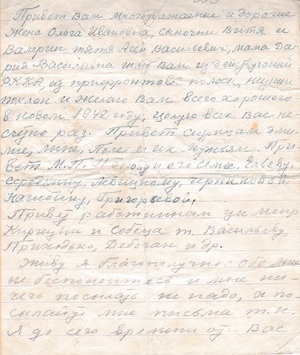 Привет Вам многоуважаемые и дорогие
Жена Ольга Ивановна, сыночки Витя и
Валерик тятя Агей Васильевич, мама Да
рия Васильевна шлю Вам из действующей
РККА, из прифронтовой полосы, низкий
поклон и желаю Вам всего хорошого
в новом 1942 году, целую всех Вас не-
счетно раз. Привет сестрицам
Поле и их мужьям. При
вет М.П. и его семье,
Сергееву,
Григорьевой,
Привет работникам
и Собеса т. Васильеву
Приходько, и др.
Живу я благополучно. Обо мне
не беспокоитесь и мне ни-
чего посылать не надо, а по
сылайте мне письма т.к.
Я до сего времени от Вас